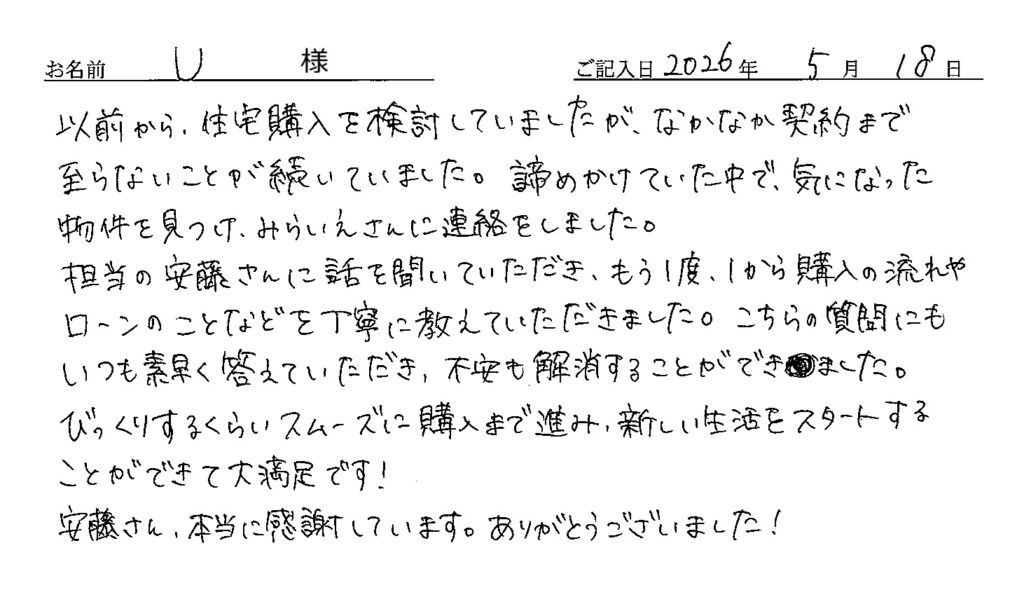 お名前 U 様 ご記入日 2026年 5月 18日
以前から、住宅購入を検討していましたが、なかなか契約まで
至らないことが続いていました。諦めかけていた中で、気になった
物件を見つけ、みらいえさんに連絡をしました。
担当の安藤さんに話を聞いていただき、もう1度、1から購入の流れや
ローンのことなどを丁寧に教えていただきました。こちらの質問にも
いつも素早く答えていただき、不安も解消することができました。
びっくりするくらいスムーズに購入まで進み、新しい生活をスタートする
ことができて大満足です!
安藤さん、本当に感謝しています。ありがとうございました!